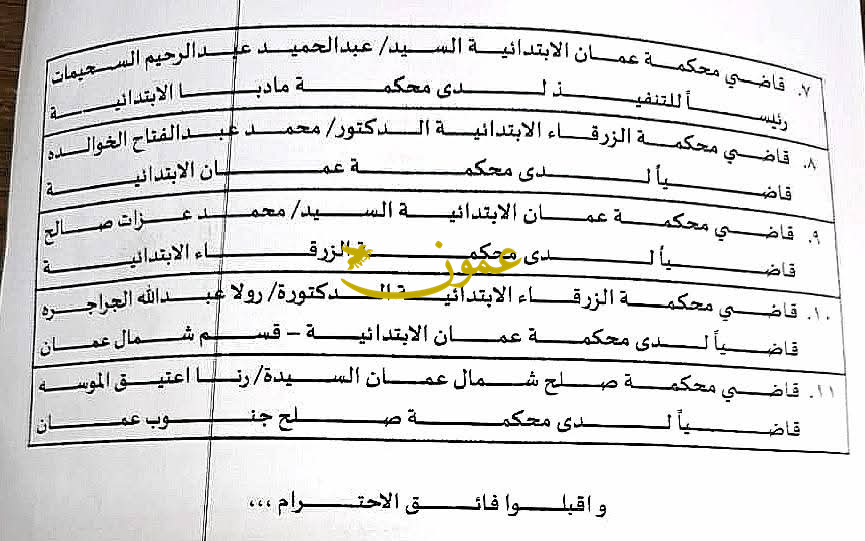 ٧. قاضي محكمة عمان الابتدائية السيد/ عبدالحميد عبدالرحيم السحيمات
رئيساً للتنفيذ لدى محكمة مادبا الابتدائية
٨. قاضي محكمة الزرقاء الابتدائية الدكتور/ محمد عبدالفتاح الخوالده
قاضياً لدى محكمة عمان الابتدائية
٩. قاضي محكمة عمان الابتدائية السيد/ محمد عزات صالح
قاضياً لدى محكمة الزرقاء الابتدائية
عمون
١٠. قاضي محكمة الزرقاء الابتدائية الدكتورة/ رولا عبدالله الجراجره
قاضياً لدى محكمة عمان الابتدائية – قسم شمال عمان
١١. قاضي محكمة صلح شمال عمان السيدة/ رنا اعتيق الموسه
قاضياً لدى محكمة صلح جنوب عمان
و اقبلوا فائق الاحترام ،،،